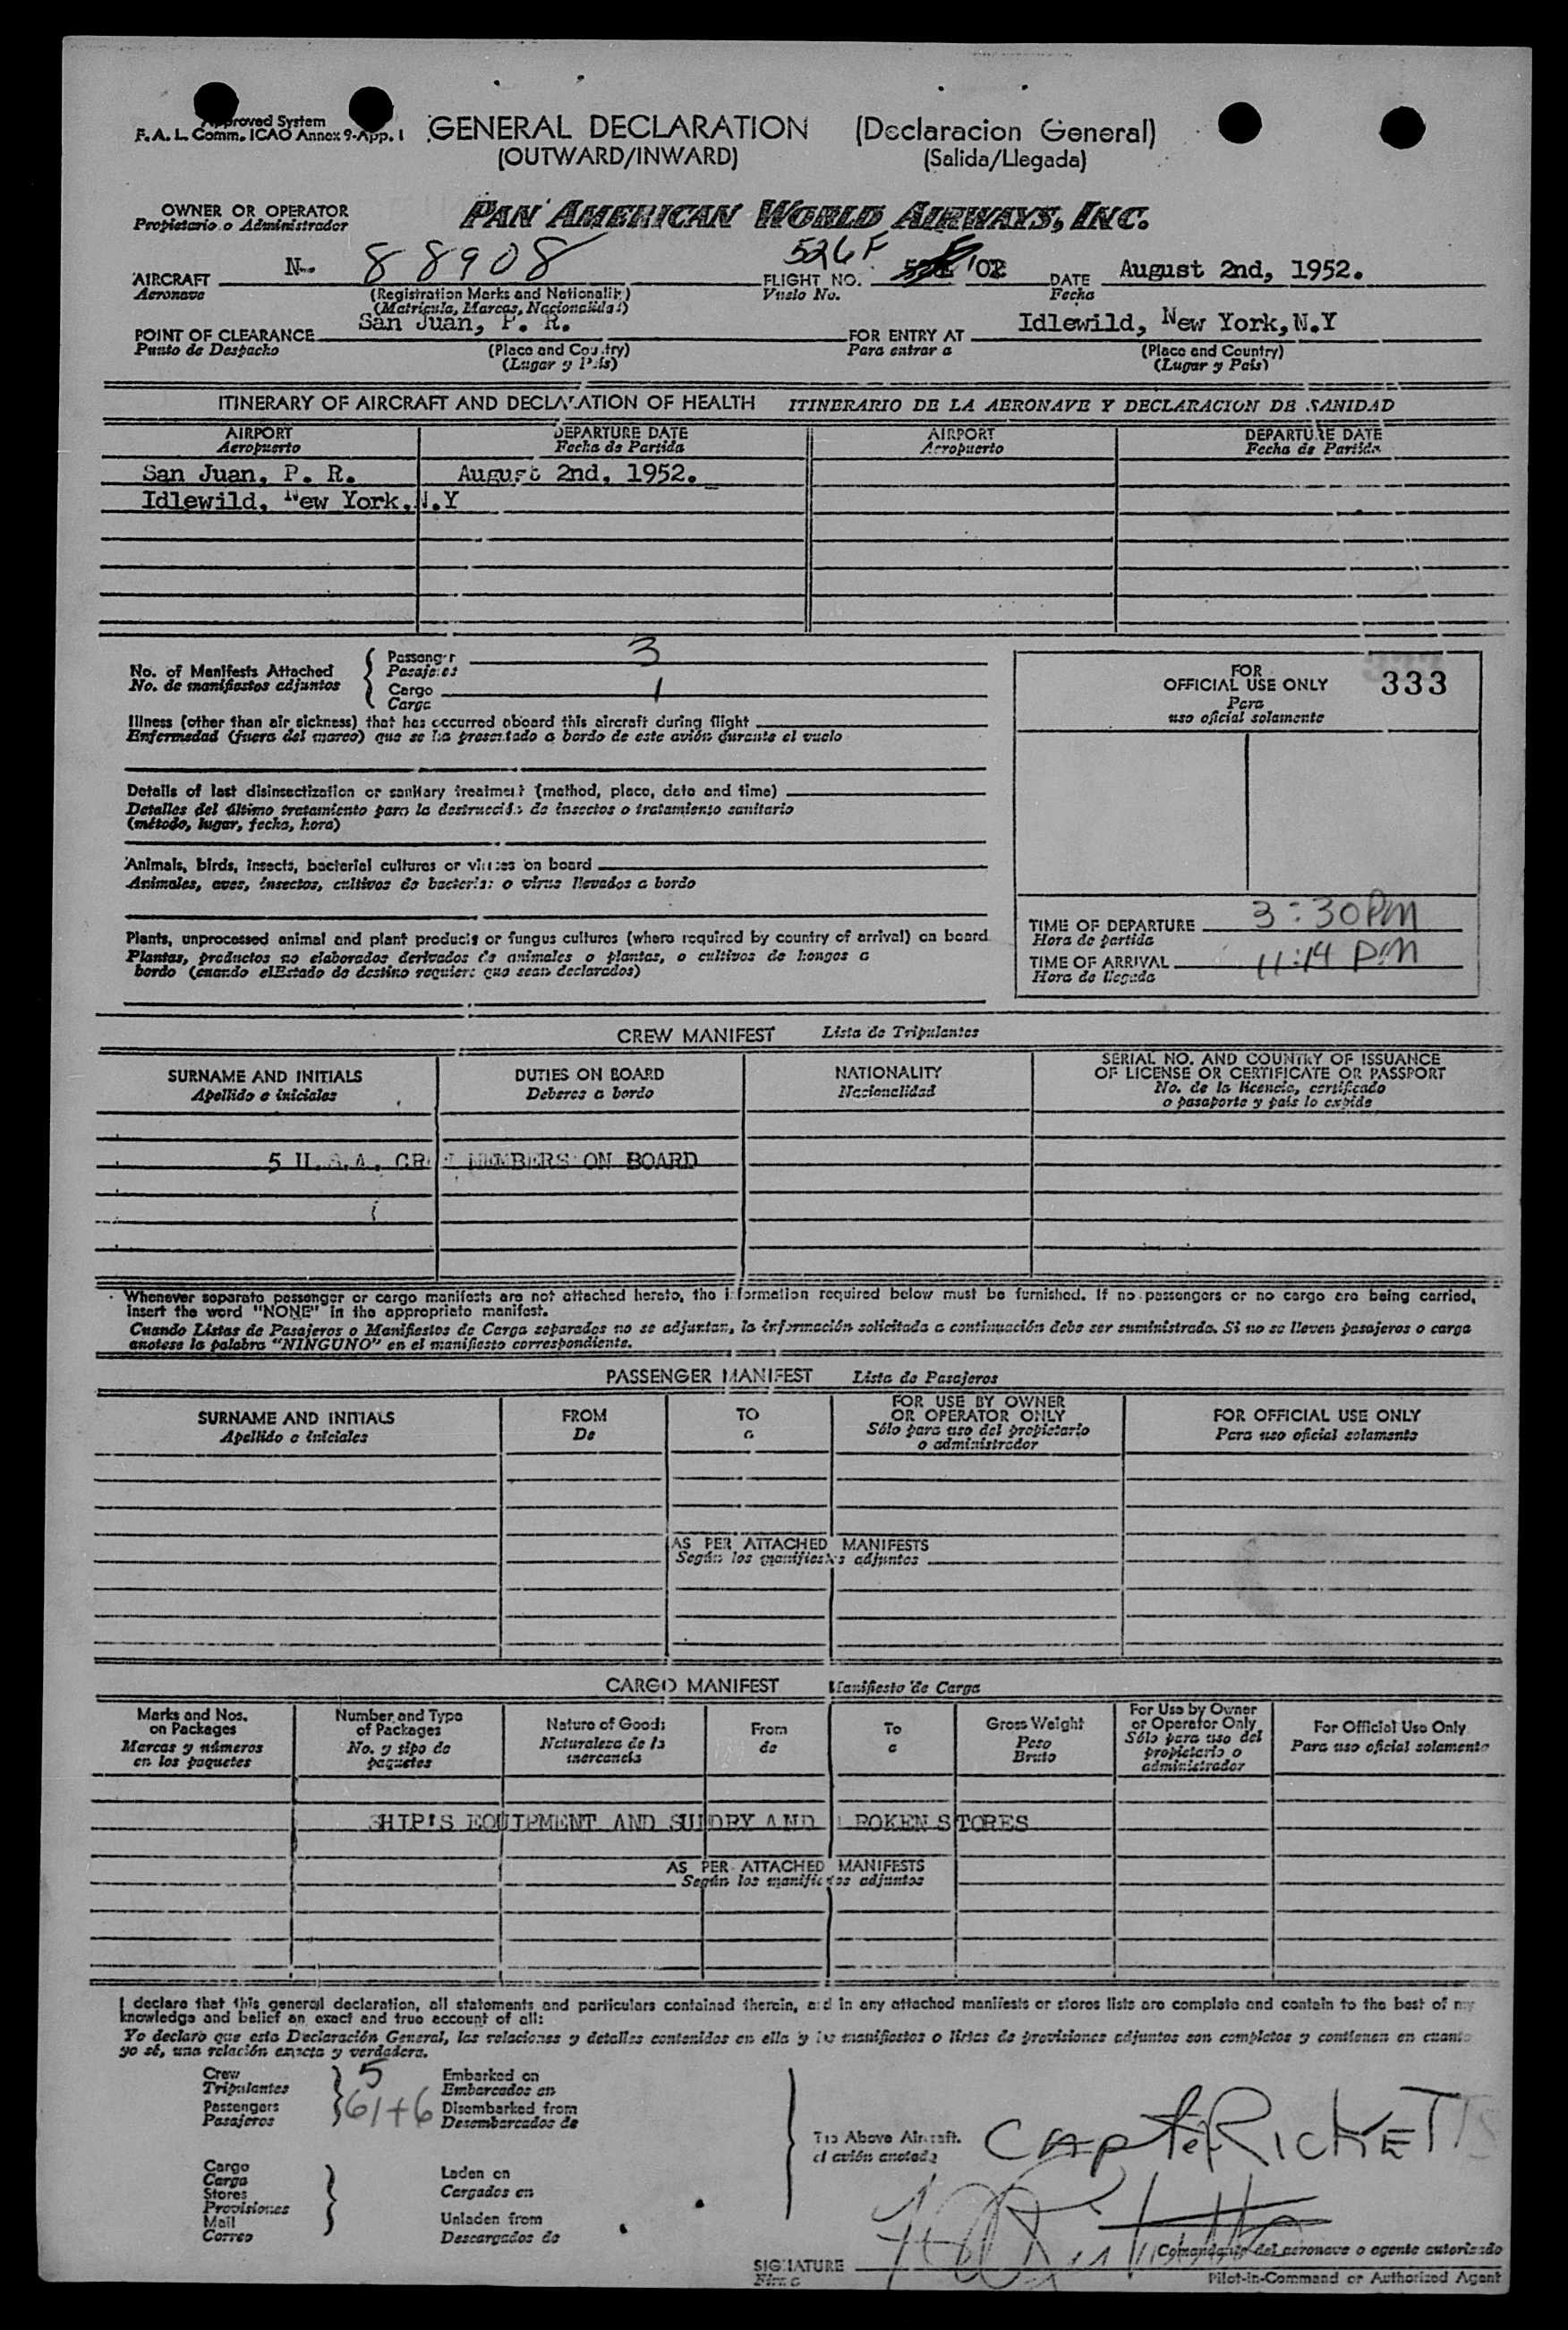 Approved System
F. A. L. Comm. ICAO Annex 9-App. 1
GENERAL DECLARATION (Declaracion General)
(OUTWARD/INWARD) (Salida/Llegada)
OWNER OR OPERATOR
Propietario o Administrador
PAN AMERICAN WORLD AIRWAYS, INC.
526F
AIRCRAFT N-- 88908 FLIGHT NO. /02 DATE August 2nd, 1952.
Aeronave (Registration Marks and Nationality) Vuelo No. Fecha
(Matricula, Marcas, Nacionalidad)
POINT OF CLEARANCE San Juan, P. R. FOR ENTRY AT Idlewild, New York,N.Y
Punto de Despacho (Place and Country) Para entrar a (Place and Country)
(Lugar y País) (Lugar y País)
ITINERARY OF AIRCRAFT AND DECLARATION OF HEALTH ITINERARIO DE LA AERONAVE Y DECLARACION DE SANIDAD
AIRPORT DEPARTURE DATE AIRPORT DEPARTURE DATE
Aeropuerto Fecha de Partida Aeropuerto Fecha de Partida
San Juan, P. R. August 2nd, 1952.
Idlewild, New York,N.Y
No. of Manifests Attached
No. de manifiestos adjuntos
Passenger 3
Pasajeros
Cargo 1
Carga
Illness (other than air sickness) that has occurred aboard this aircraft during flight
Enfermedad (fuera del mareo) que se ha presentado a bordo de este avión durante el vuelo
Details of last disinsectization or sanitary treatment (method, place, date and time)
Detalles del último tratamiento para la destrucción de insectos o tratamiento sanitario
(método, lugar, fecha, hora)
Animals, birds, insects, bacterial cultures or viruses on board
Animales, aves, insectos, cultivos de bacterias o virus llevados a bordo
Plants, unprocessed animal and plant products or fungus cultures (where required by country of arrival) on board
Plantas, productos no elaborados derivados de animales o plantas, o cultivos de hongos a
bordo (cuando elEstado de destino requiere que sean declarados)
FOR
OFFICIAL USE ONLY 333
Para
uso oficial solamente
TIME OF DEPARTURE 3:30PM
Hora de partida
TIME OF ARRIVAL 11:14 PM
Hora de llegada
CREW MANIFEST Lista de Tripulantes
SURNAME AND INITIALS DUTIES ON BOARD NATIONALITY SERIAL NO. AND COUNTRY OF ISSUANCE
OF LICENSE OR CERTIFICATE OR PASSPORT
Apellido e iniciales Deberes a bordo Nacionalidad No. de la licencia, certificado
o pasaporte y país lo expide
5 U.S.A. CREW MEMBERS ON BOARD
Whenever separate passenger or cargo manifests are not attached hereto, the information required below must be furnished. If no passengers or no cargo are being carried,
insert the word "NONE" in the appropriate manifest.
Cuando Listas de Pasajeros o Manifiestos de Carga separados no se adjuntan, la información solicitada a continuación debe ser suministrada. Si no se lleven pasajeros o carga
anotese la palabra "NINGUNO" en el manifiesto correspondiente.
PASSENGER MANIFEST Lista de Pasajeros
SURNAME AND INITIALS FROM TO FOR USE BY OWNER OR OPERATOR ONLY FOR OFFICIAL USE ONLY
Apellido e iniciales De a Sólo para uso del propietario o administrador Para uso oficial solamente
AS PER ATTACHED MANIFESTS
Según los manifiestos adjuntos
CARGO MANIFEST Manifiesto de Carga
Marks and Nos. on Packages Number and Type of Packages Nature of Goods From To Gross Weight For Use by Owner or Operator Only For Official Use Only
Marcas y números en los paquetes No. y tipo de paquetes Naturaleza de la mercancia de a Peso Bruto Sólo para uso del propietario o administrador Para uso oficial solamente
SHIP'S EQUIPMENT AND SUNDRY AND BROKEN STORES
AS PER ATTACHED MANIFESTS
Según los manifiestos adjuntos
I declare that this general declaration, all statements and particulars contained therein, and in any attached manifests or stores lists are complete and contain to the best of my
knowledge and belief an exact and true account of all:
Yo declaro que esta Declaración General, las relaciones y detalles contenidos en ella y los manifiestos o listas de provisiones adjuntos son completos y contienen en cuanto
yo sé, una relación exacta y verdadera.
Crew 5 Embarked on
Tripulantes Embarcados en
Passengers 61+6 Disembarked from
Pasajeros Desembarcados de
The Above Aircraft.
el avión anotado
CAPT. RICKETTS
Cargo
Carga Laden on
Stores Cargados en
Provisiones
Mail Unladen from
Correo Descargados de
Comandante del aeronave o agente autorizado
SIGNATURE
Firma
Pilot-in-Command or Authorized Agent